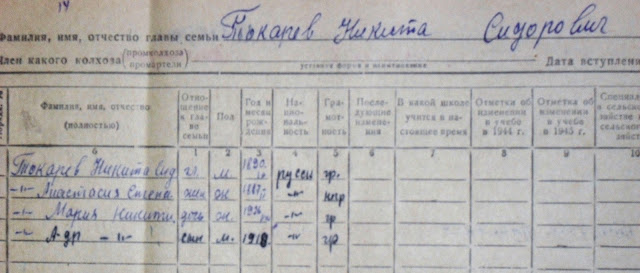 14
Фамилия, имя, отчество главы семьи Токарев Никита Сидорович
Член какого колхоза (промколхоза промартели)
указать форма и наименование
Дата вступления
Фамилия, имя, отчество (полностью) Отношение к главе семьи Пол Год и месяц рождения Национальность Грамотность Последующие изменения В какой школе учится в настоящее время Отметки об изменении в учебе в 1944 г. Отметки об изменении в учебе в 1945 г. Специальн в сельск зяйстве сельског зяйст
б 1 2 3 4 5 6 7 8 9 10
Токарев Никита Сид гл. м. 1890 русск гр.
-"- Анастасия жен ж. 1887 -"- нгр
-"- Мария Никити. дочь ж. 1926 -"- гр
-"- -"- сын м. 1918 -"- гр